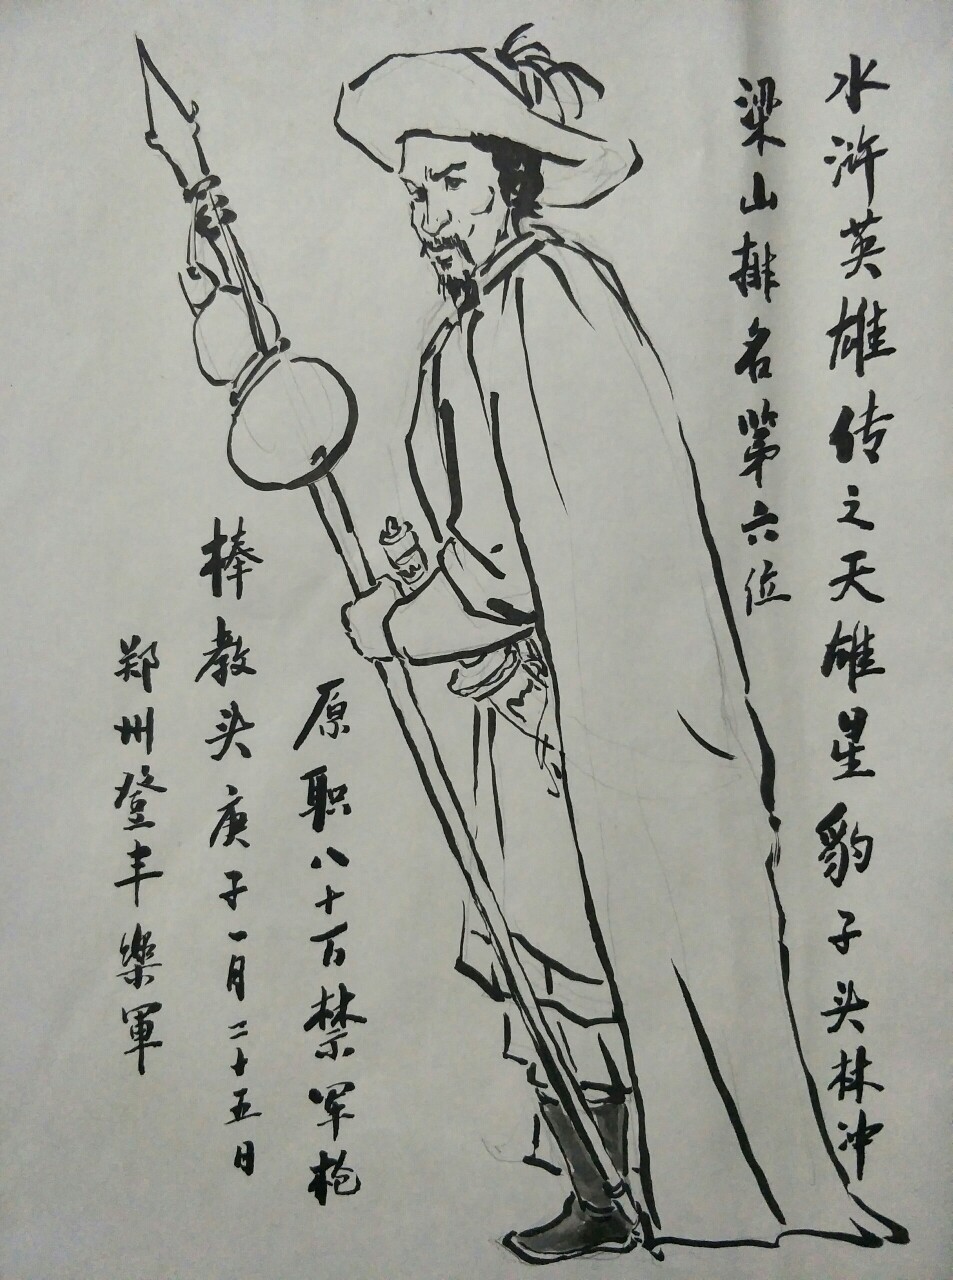 水浒英雄传之天雄星豹子头林冲
梁山排名第六位
原职八十万禁军枪
棒教头庚子一月二十五日
郑州登丰樂軍